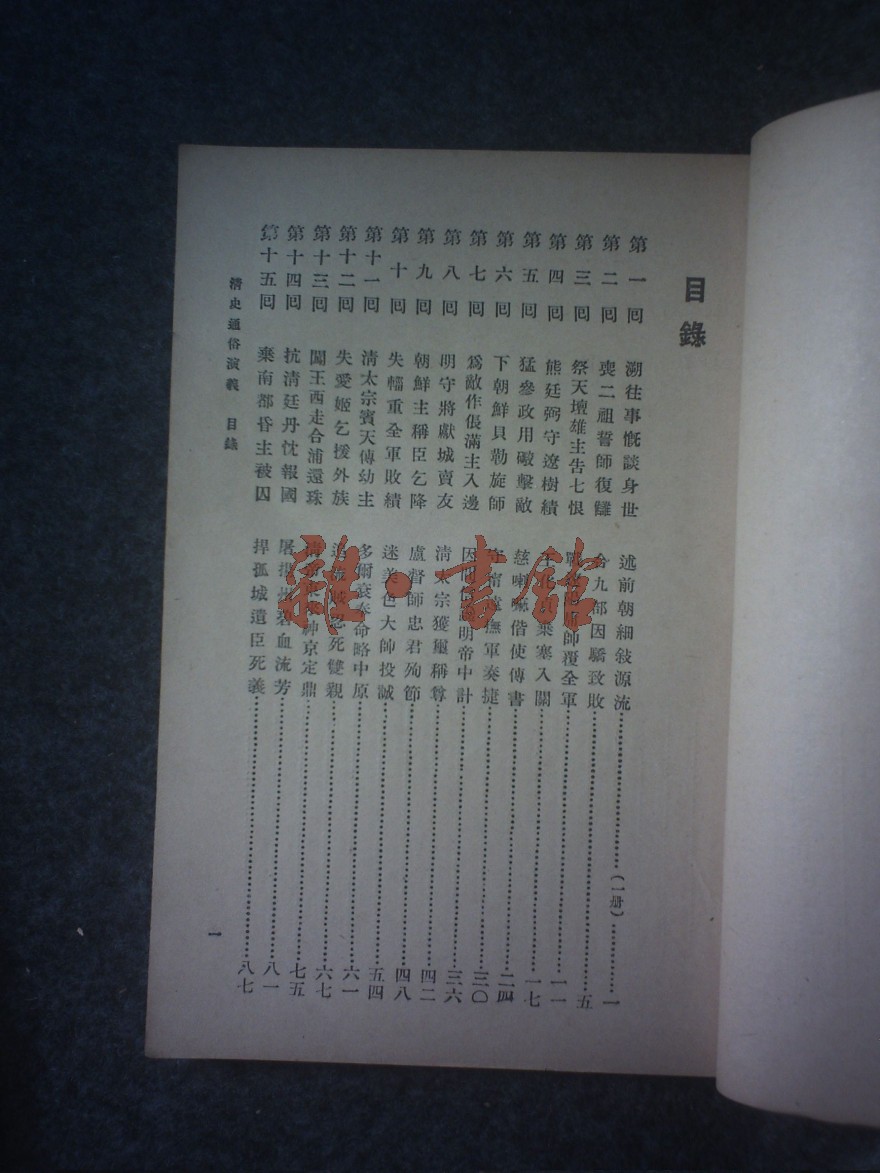 目錄
第一囘 溯往事慨談身世 述前朝細敍源流……(一册)……一
第二囘 喪二祖誓師復讎 合九部因驕致敗……五
第三囘 祭天壇雄主告七恨 戰 師覆全軍……一一
第四囘 熊廷弼守遼樹績 王化貞棄塞入關……一七
第五囘 猛參政用礮擊敵 慈喇嘛偕使傳書……二四
第六囘 下朝鮮貝勒旋師 守甯遠撫軍奏捷……三〇
第七囘 爲敵作倀滿主入邊 因間 明帝中計……三六
第八囘 明守將獻城賣友 清太宗獲璽稱尊……四二
第九囘 朝鮮主稱臣乞降 盧督師忠君殉節……四八
第十囘 失輜重全軍敗績 迷美色大帥投誠……五四
第十一囘 清太宗賓天傳幼主 多爾袞奉命略中原……六一
第十二囘 失愛姬乞援外族 追 死雙親……六七
第十三囘 闖王西走合浦還珠 清 神京定鼎……七五
第十四囘 抗清廷丹忱報國 屠揚州碧血流芳……八一
第十五囘 棄南都昏主被囚 捍孤城遺臣死義……八七
清史通俗演義 目錄
一
雜·書館